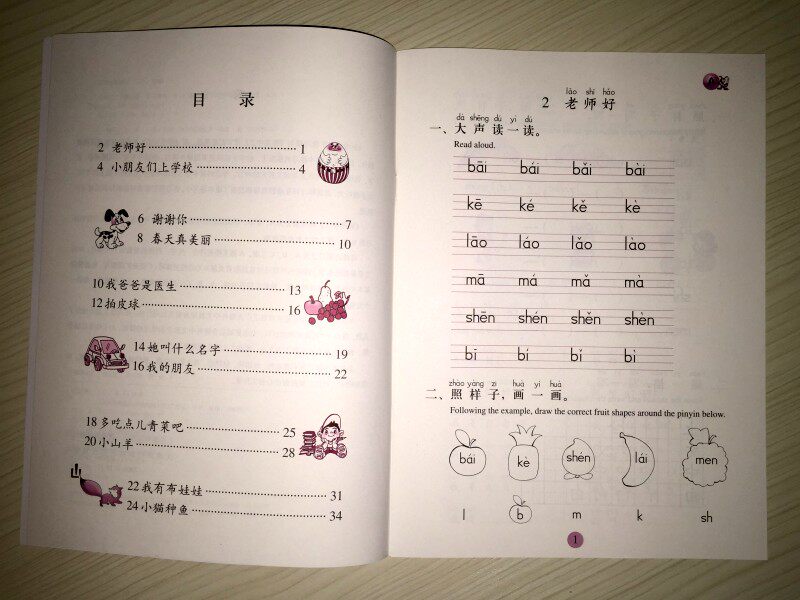 目 录
2 老师好 1
4 小朋友们上学校 4
6 谢谢你 7
8 春天真美丽 10
10 我爸爸是医生 13
12 拍皮球 16
14 她叫什么名字 19
16 我的朋友 22
18 多吃点儿青菜吧 25
20 小山羊 28
22 我有布娃娃 31
24 小猫种鱼 34
lǎo shī hǎo
2 老 师 好
dà shēng dú yì dú
一、大 声 读 一 读。
Read aloud.
bāi bái bǎi bài
kē ké kě kè
lāo láo lǎo lào
mā má mǎ mà
shēn shén shěn shèn
bī bí bǐ bì
zhào yàng zi huà yí huà
二、照 样 子，画 一 画。
Following the example, draw the correct fruit shapes around the pinyin below.
bái kè shén lái men
l b m k sh
1